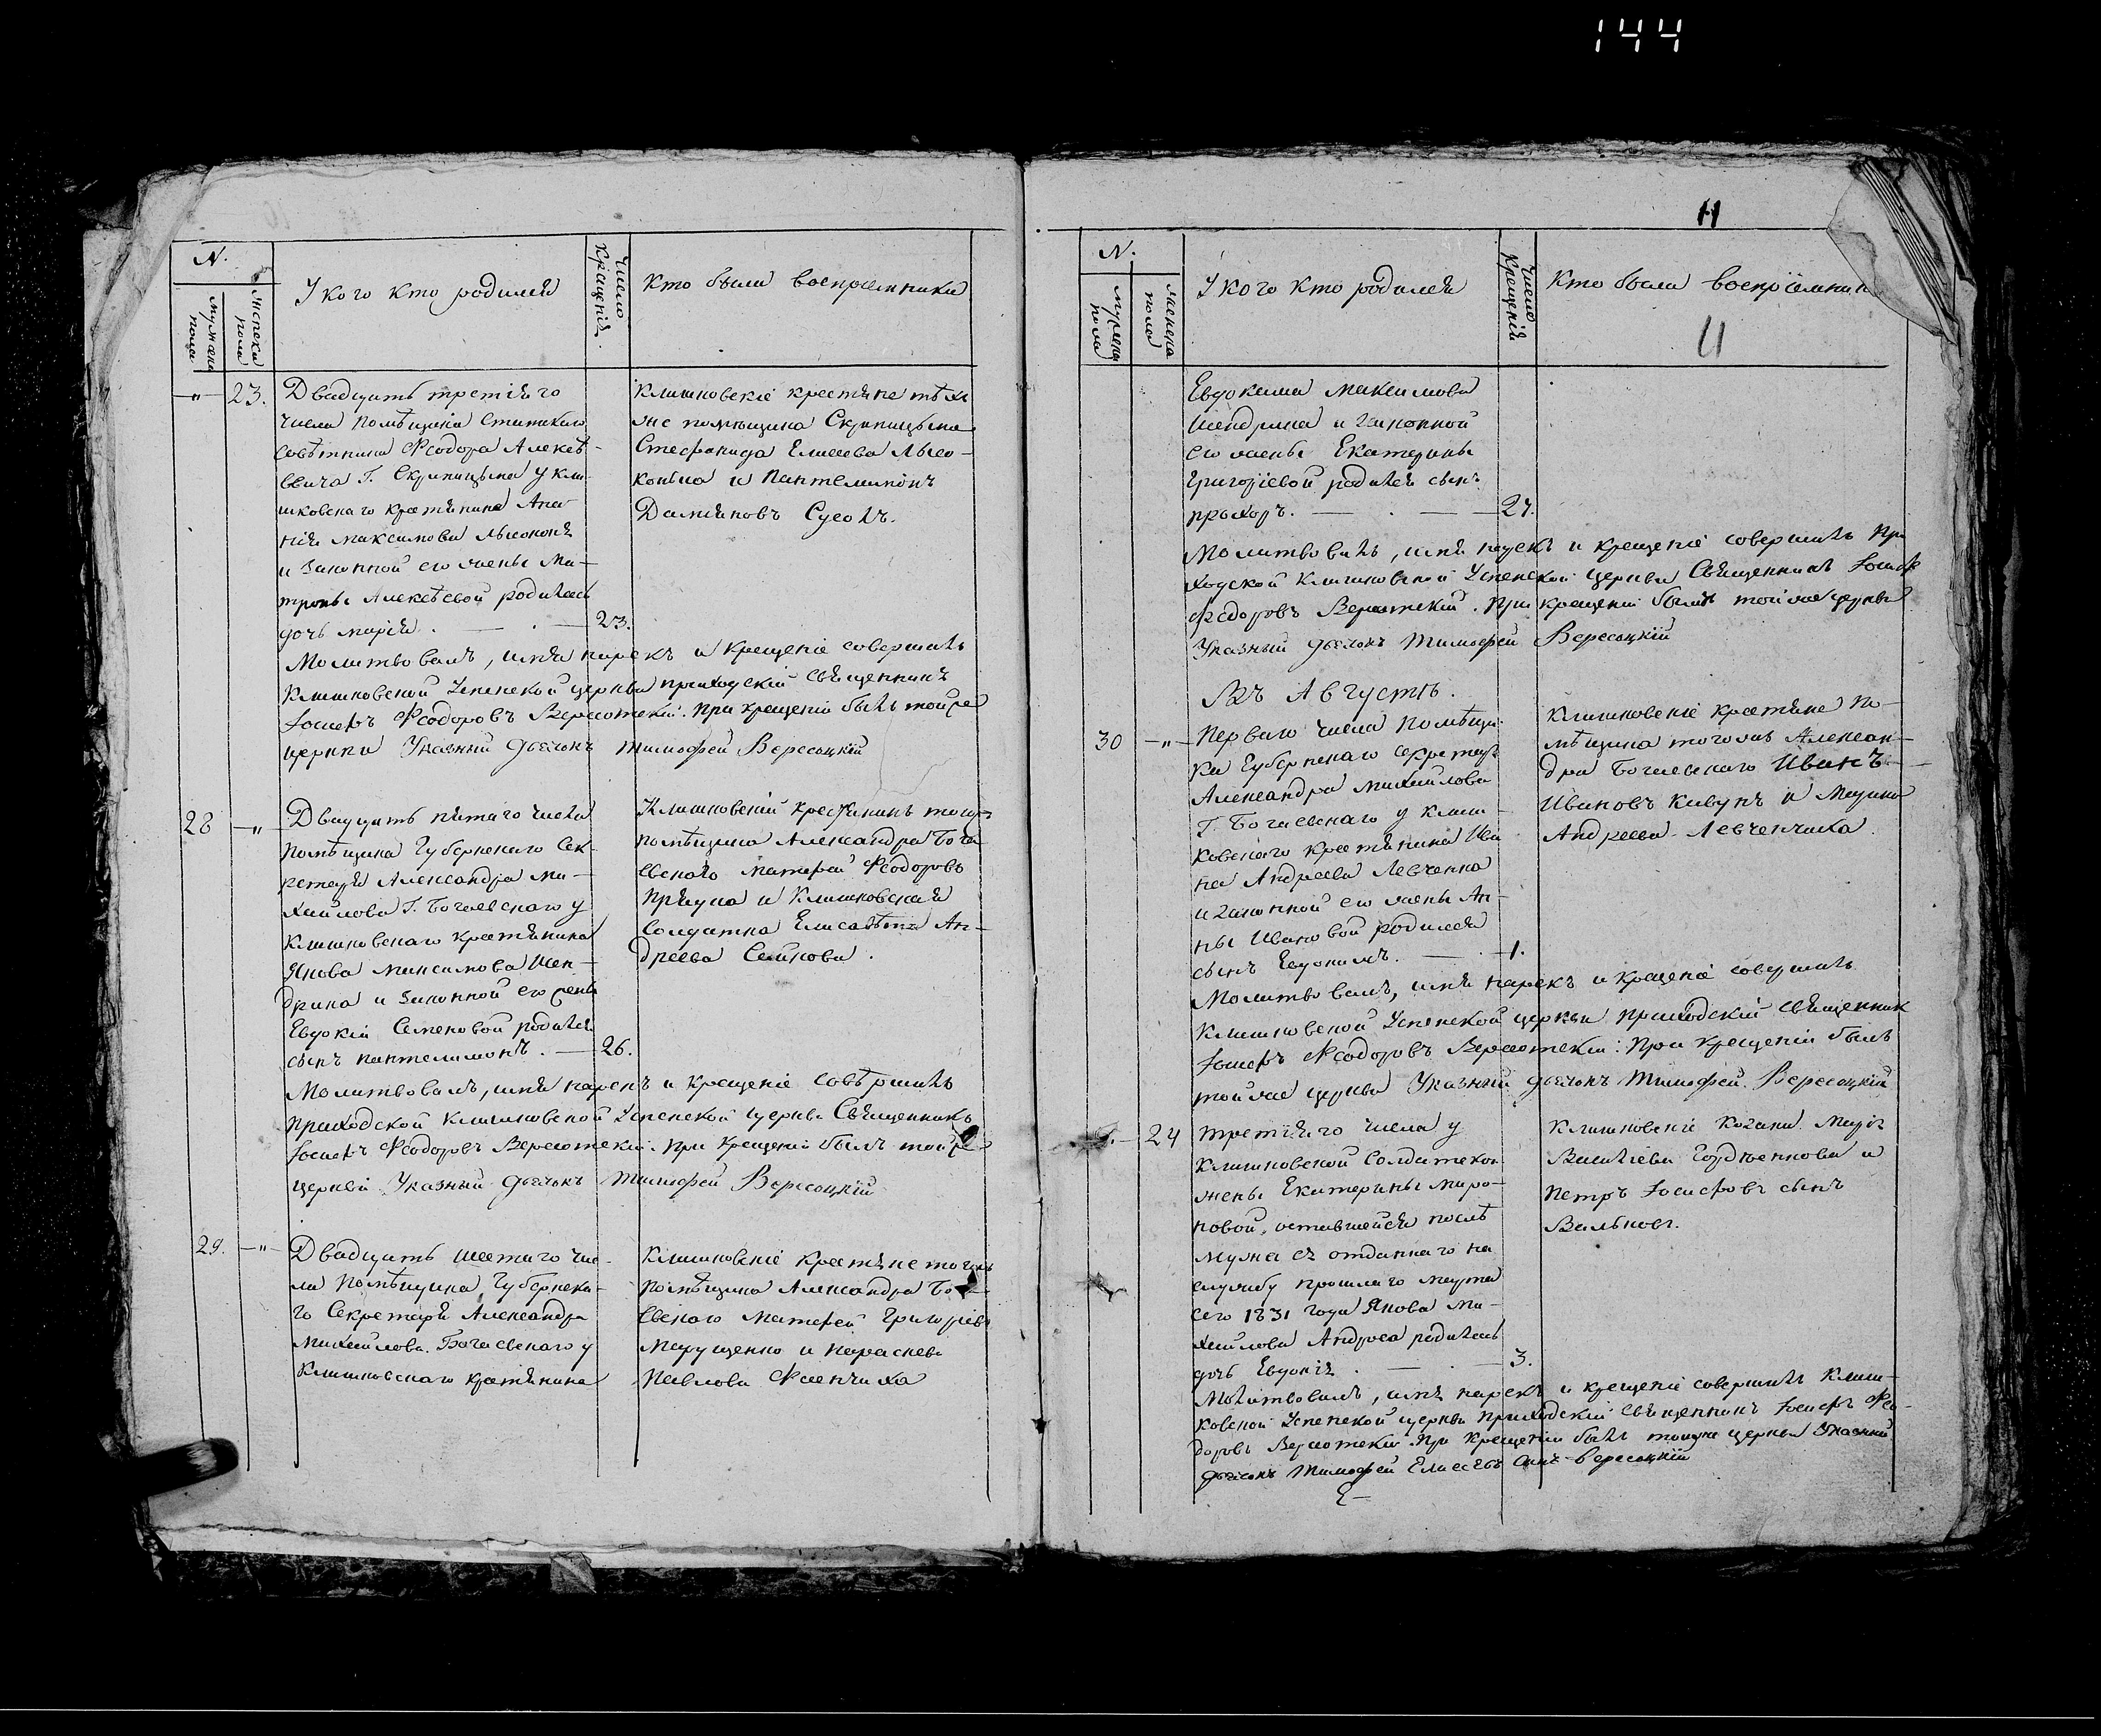 144
N.
Мужеска пола
Женска пола
У кого кто родился
Число крещенія.
Кто были воспріемники
23. Двадцять третіяго
числа помѣщика Статскаго
Совѣтника Феодора Алексѣ-
евича Г. Скрипицына у кли-
шковскаго крестянина Ана-
нія Максимова
и законной его жены Ма-
троны Алексѣевой родилась
дочь марія. 23.
Клишковскіе крестяне тѣхъ
же помѣщика Скрипицына
Стефанида Елисеева Лысо-
кониха и Пантелимонъ
Даміяновъ
Молитвовалъ, имя нарекъ и крещеніе совершалъ
Клишковской Успенской церкви приходскій священникъ
Іосифъ Феодоровъ Вересотскій. При крещеніи былъ той же
церкви Указный дьячокъ Тимофей Вересоцкій
28 Двадцять пятаго числа
помѣщика Губернскаго Сек-
ретаря Александра Ми-
хайлова Г. Богаевскаго у
Клишковскаго крестянина
Якова Максимова Шен-
дрика и законной его жены
Евдокіи Семеновой родился
сынъ пантелимонъ. — 26.
Клишковскій крестянинъ того ж
помѣщика Александра Бога-
евскаго Матфей Феодоровъ
и Клишковская
Солдатка Елисавета Ан-
дреева
Молитвовалъ, имя нарекъ и крещеніе совѣршалъ
приходской Клишковской Успенской церкви Священникъ
Іосифъ Феодоровъ Вересотскій. При крещеніи былъ той же
церкви Указный дьячокъ Тимофей Вересоцкій
29. Двадцять шестаго чис-
ла помѣщика Губернска-
го Секретаря Александра
Михайлова Богаевскаго у
Клишковскаго крестянина
Клишковскіе крестяне того ж
помѣщика Александра Бога-
евскаго Матфей Григоріевъ
Марущенко и Параскева
Павлова
11
N.
Мужеска пола
Женска пола
У кого кто родился
Число крещенія
Кто были воспріемники
11
Евдокима Максимова
Шендрика и законной
его жены Екатерины
Григоріевой родился сынъ
прохоръ. 27.
Молитвовалъ, имя нарекъ и крещеніе совершалъ При-
ходской Клишковской Успенской церкви Священникъ Іосифъ
Федоровъ Вересотскій. При крещеніи былъ той же церкви
Указный дьячокъ Тимофей Вересоцкій
Въ Августѣ.
30 Перваго числа помѣщи-
ка Губернскаго Секретаря
Александра Михайлова
Г. Богаевскаго у Клиш-
ковскаго крестянина Ива
на Андреева Левченка
и законной его жены Ан-
ны Ивановой родился
сынъ Евдокимъ. 1.
Клишковскіе крестяне по-
мѣщика того же Алексан-
дра Богаевскаго Иванъ
Ивановъ Кавунъ и Марина
Андреева Левченчиха.
Молитвовалъ, имя нарекъ и крещеніе совершалъ
Клишковской Успенской церкви приходскій священник
Іосифъ Феодоровъ Вересотскій: При крещеніи былъ
той же церкви Указный дьячокъ Тимофей Вересоцкій
24 третіяго числа у
Клишковской Солдатской
жены Екатерины Миро-
новой, оставшейся послѣ
мужа ея отданнаго на
службу прошлаго марта
сего 1831 года Якова Ми-
хайлова родилась
дочь Евдокія. 3.
Клишковскіе Козаки Марія
Василіева и
Петръ Іосифовъ сынъ
Молитвовалъ, имя нарекъ и крещеніе совершалъ Клиш-
ковской Успенской церкви приходскій священникъ Іосифъ Фео-
доровъ Вересотскій. При крещеніи былъ тоижже церкви Указный
дьячокъ Тимофей Елисеевъ сынъ Вересоцкій